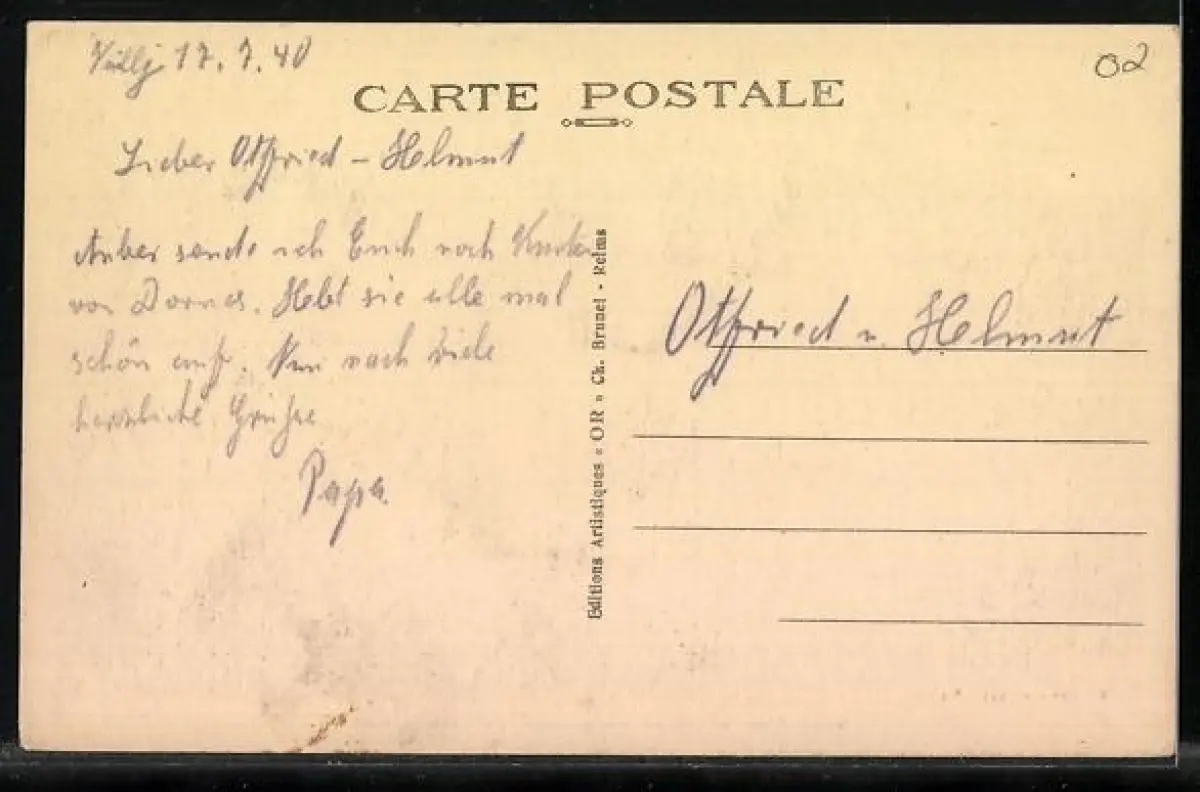 17.7.40
02
CARTE POSTALE
Lieber Otfried - Helmut
sende ich Euch noch Karten
von Dormes. Hebt sie alle mal
schön auf. Nun noch viele
herzliche Grüße
Papa.
Editions Artistiques « OR » Ch. Brunel - Reims
Otfried u. Helmut